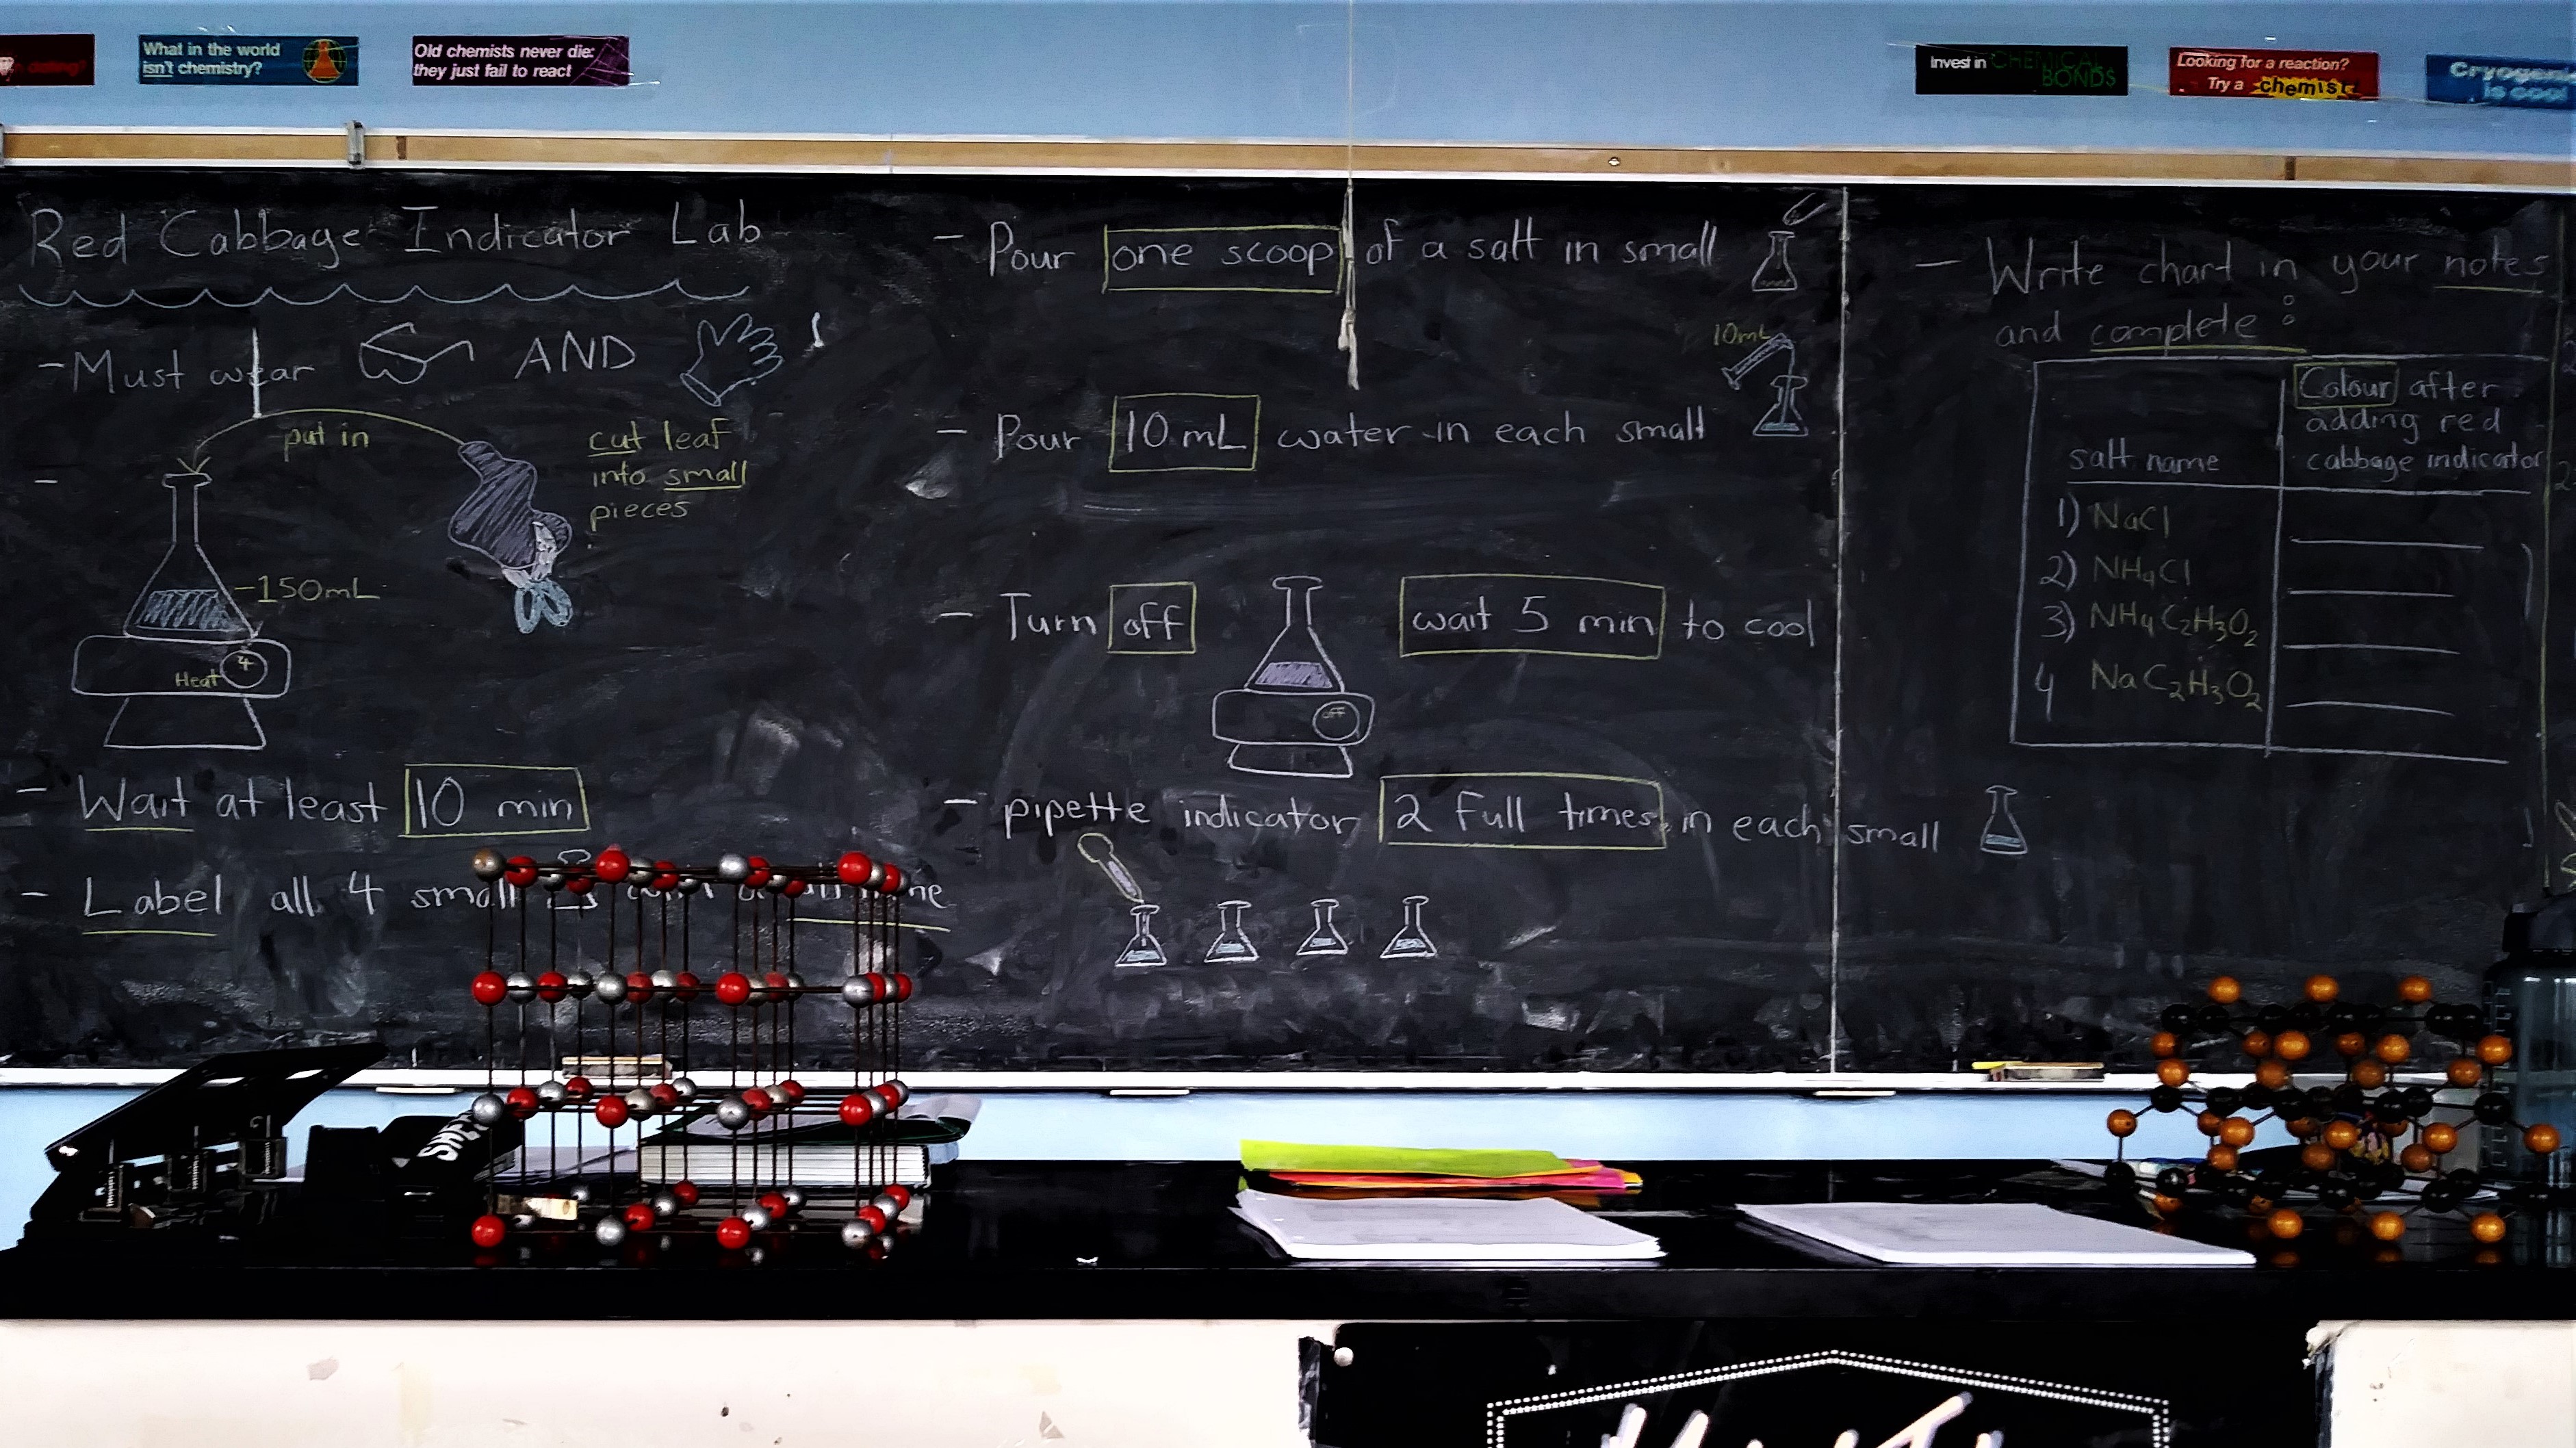 What in the world
isn't chemistry?
Old chemists never die:
they just fail to react
Invest in CHEMICAL
BONDS
Looking for a reaction?
Try a chemist
Red Cabbage Indicator Lab
-Must wear AND
put in
cut leaf
into small
pieces
-150mL
4
Heat
- Wait at least 10 min
- Label all 4 small
- Pour one scoop of a salt in small
10mL
- Pour 10 mL water in each small
- Turn off wait 5 min to cool
off
- pipette indicator 2 full times in each small
- Write chart in your notes
and complete:
Colour after
adding red
cabbage indicator
salt name
1) NaCl
2) NH4Cl
3) NH4C2H3O2
4 NaC2H3O2